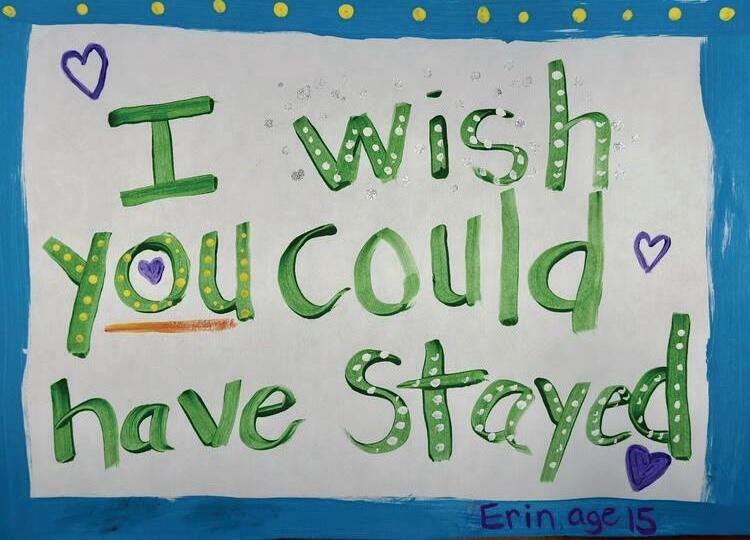 I wish
you could
have Stayed
Erin age 15